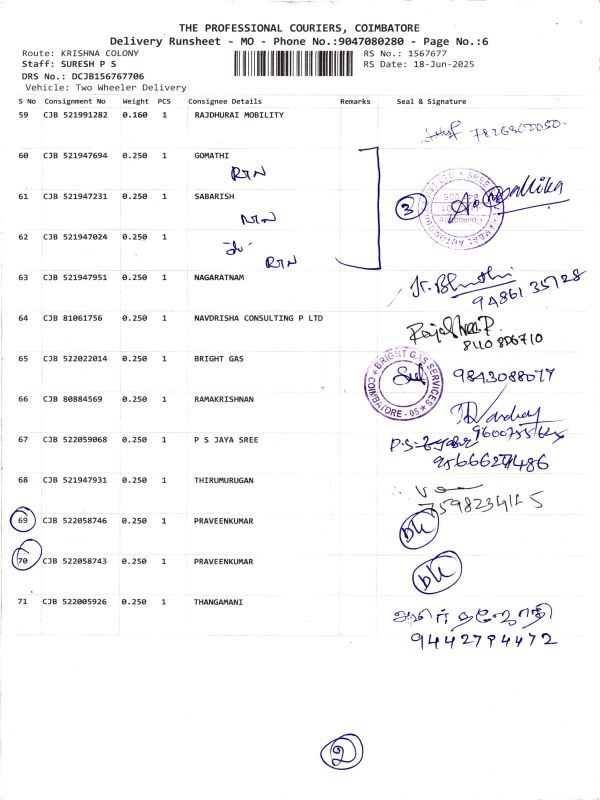 THE PROFESSIONAL COURIERS, COIMBATORE
Delivery Runsheet - MO - Phone No.:9047080280 - Page No.:6
Route: KRISHNA COLONY RS No.: 1567677
Staff: SURESH P S RS Date: 18-Jun-2025
DRS No.: DCJB156767706
Vehicle: Two Wheeler Delivery
S No Consignment No Weight PCS Consignee Details Remarks Seal & Signature
59 CJB 521991282 0.160 1 RAJDHURAI MOBILITY
60 CJB 521947694 0.250 1 GOMATHI
RTN
61 CJB 521947231 0.250 1 SABARISH
3
RTN
62 CJB 521947024 0.250 1
RTN
63 CJB 521947951 0.250 1 NAGARATNAM
94861 35728
64 CJB 81061756 0.250 1 NAVDRISHA CONSULTING P LTD
8110 806710
65 CJB 522022014 0.250 1 BRIGHT GAS
BRIGHT GAS SERVICES
COIMBATORE - 05
9843088077
66 CJB 80884569 0.250 1 RAMAKRISHNAN
67 CJB 522059068 0.250 1 P S JAYA SREE
68 CJB 521947931 0.250 1 THIRUMURUGAN
69 CJB 522058746 0.250 1 PRAVEENKUMAR
70 CJB 522058743 0.250 1 PRAVEENKUMAR
71 CJB 522005926 0.250 1 THANGAMANI
9442794472
2